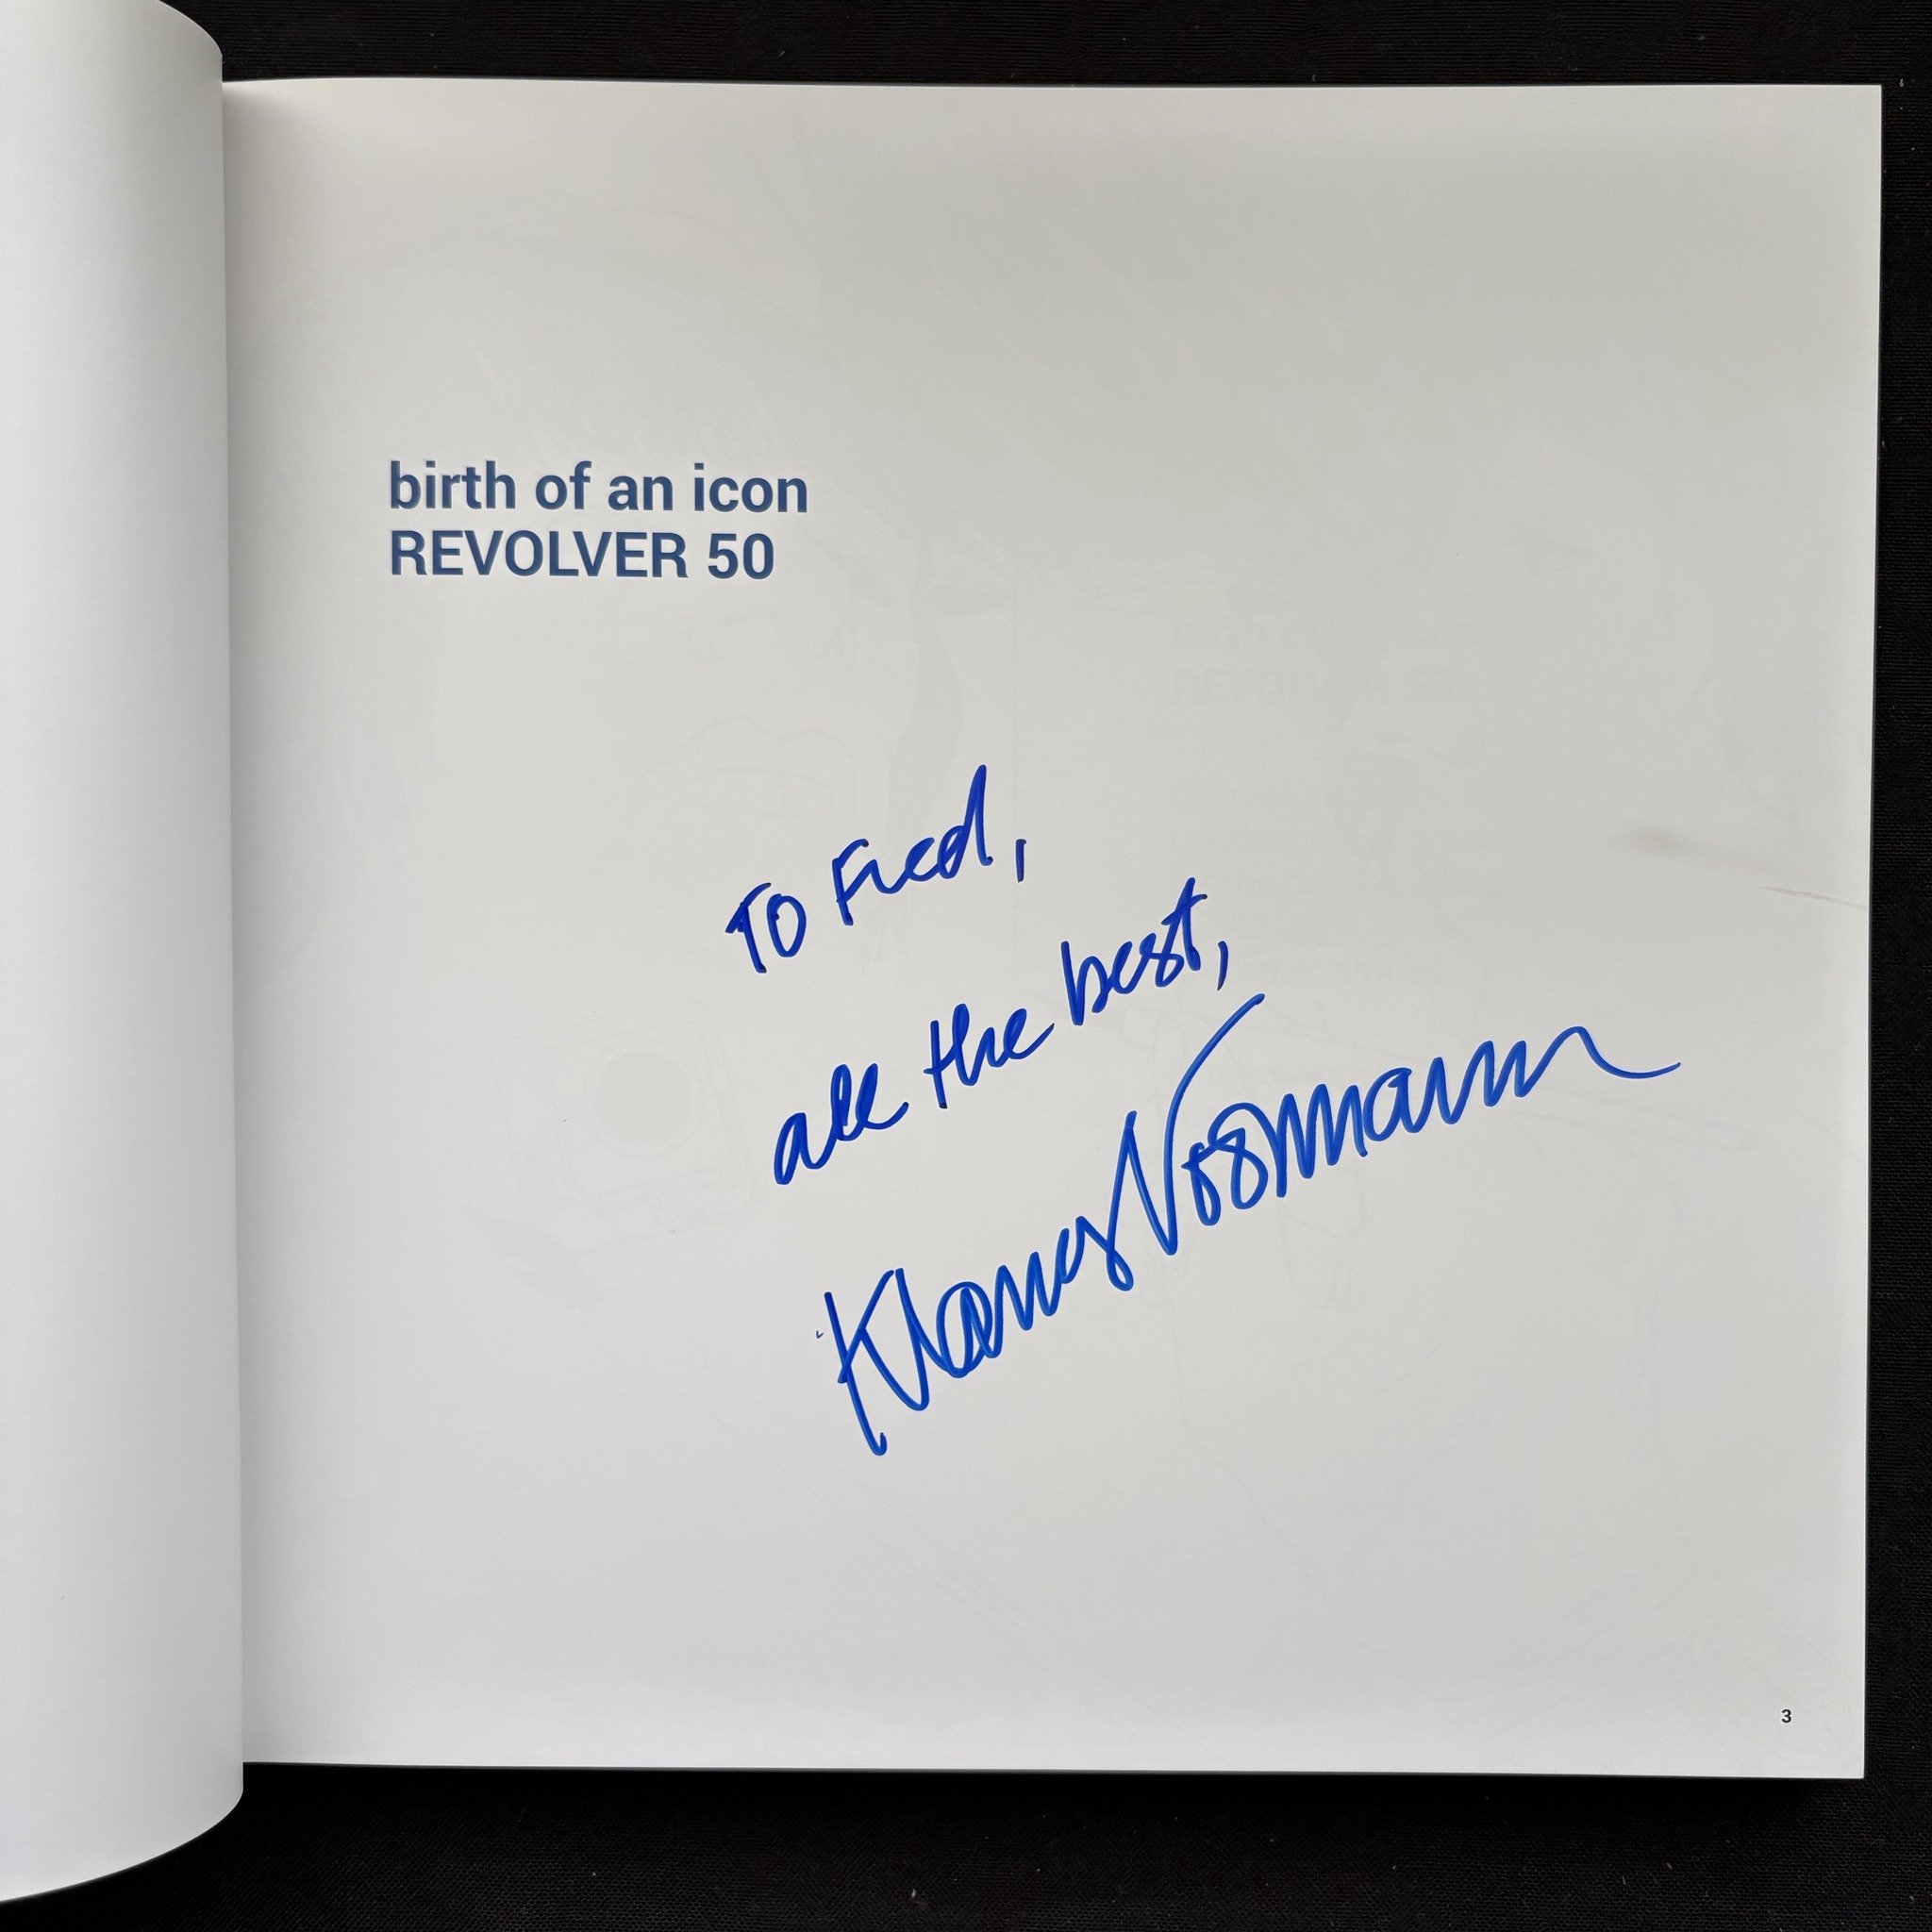 birth of an icon
REVOLVER 50
To Fred,
all the best,
Klaus Voormann
3